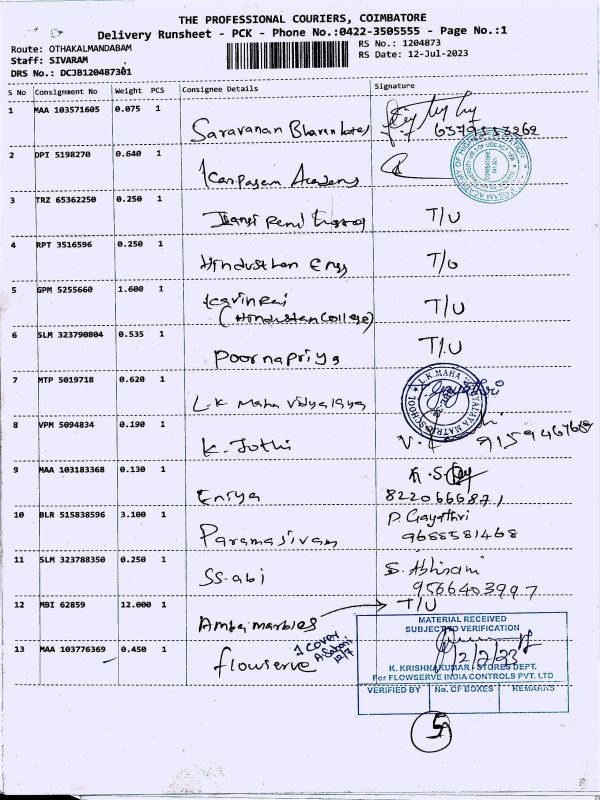 THE PROFESSIONAL COURIERS, COIMBATORE
Delivery Runsheet - PCK - Phone No.:0422-3505555 - Page No.:1
Route: OTHAKALMANDABAM
RS No.: 1204873
Staff: SIVARAM
RS Date: 12-Jul-2023
DRS No.: DCJB120487301
S No Consignment No Weight PCS Consignee Details Signature
1 MAA 103571605 0.075 1
Saravanan
2 DPI 5198270 0.640 1
Karpagam Academy
3 TRZ 65362250 0.250 1
T/U
4 RPT 3516596 0.250 1
Hindusthan Engg T/U
5 GPM 5255660 1.600 1
Kavinraj T/U
(Hindustan College)
6 SLM 323790804 0.535 1
Poornapriya T/U
7 MTP 5019718 0.620 1
L.K. Maha Vidyalaya
8 VPM 5094834 0.190 1
K. Jothi
9 MAA 103183368 0.130 1
Eniya 8220666871
10 BLR 515838596 3.100 1
P. Gayathri
Paramasivam 9688581468
11 SLM 323788350 0.250 1
SS.abi S. Abhirami
9566403997
12 MBI 62859 12.000 1
T/U
Ambaj marbles
MATERIAL RECEIVED
SUBJECT TO VERIFICATION
13 MAA 103776369 0.450 1
flowserve
1 cover
K. KRISHNAKUMAR - STORES DEPT.
For FLOWSERVE INDIA CONTROLS PVT. LTD
VERIFIED BY No. OF BOXES REMARKS